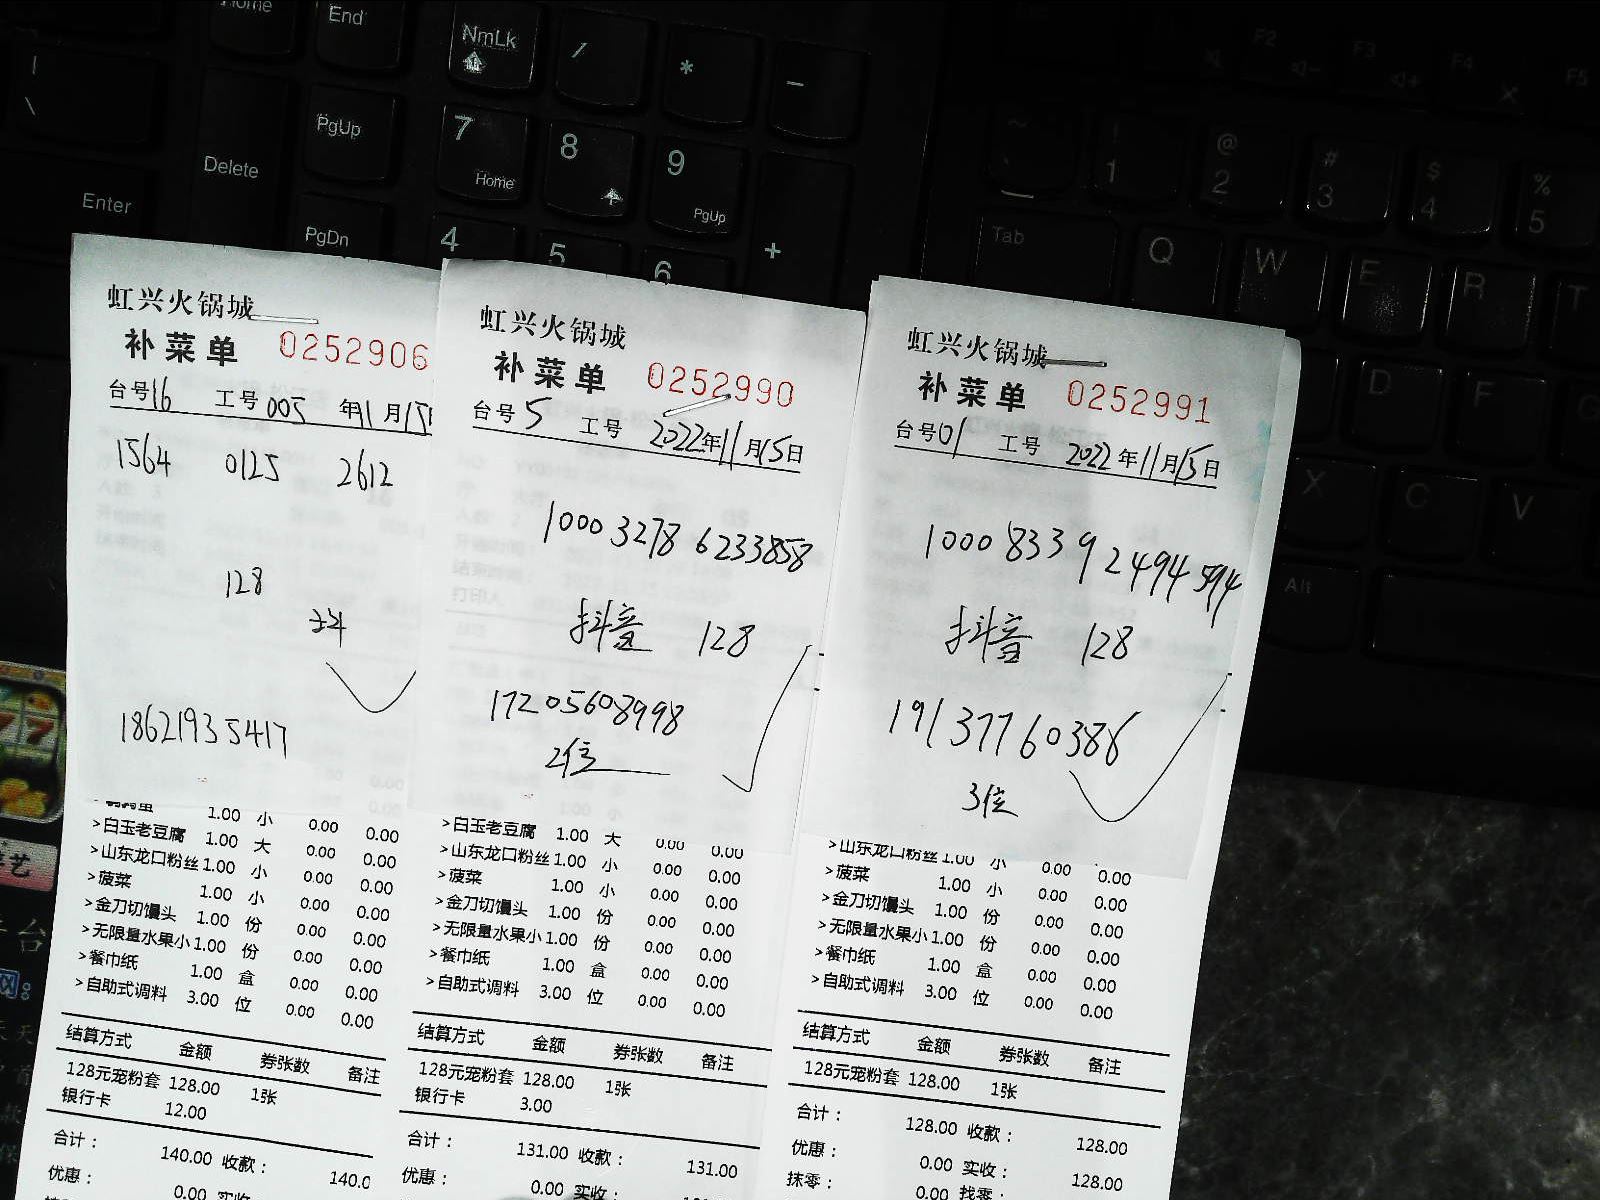 Home
End
NmLk
/
*
-
|
\
PgUp
7
Home
8
9
PgUp
Delete
Enter
PgDn
4
5
6
+
F2
F3
F4
F5
~
`
!
1
@
2
#
3
$
4
%
5
Tab
Q
W
E
R
T
D
F
G
X
C
V
Alt
虹兴火锅城
补菜单 0252906
台号16 工号005 年11月15
1564 0125 2612
128
抖
18621935417
1.00 小 0.00 0.00
>白玉老豆腐 1.00 大 0.00 0.00
>山东龙口粉丝 1.00 小 0.00 0.00
>菠菜 1.00 小 0.00 0.00
>金刀切馒头 1.00 份 0.00 0.00
>无限量水果小 1.00 份 0.00 0.00
>餐巾纸 1.00 盒 0.00 0.00
>自助式调料 3.00 位 0.00 0.00
结算方式 金额 券张数 备注
128元宠粉套 128.00 1张
银行卡 12.00
合计： 140.00 收款： 140.0
优惠： 0.00 实收
虹兴火锅城
补菜单 0252990
台号5 工号 2022年11月15日
1000 3278 6233858
抖音 128
17205608998
2位
>白玉老豆腐 1.00 大 0.00 0.00
>山东龙口粉丝 1.00 小 0.00 0.00
>菠菜 1.00 小 0.00 0.00
>金刀切馒头 1.00 份 0.00 0.00
>无限量水果小 1.00 份 0.00 0.00
>餐巾纸 1.00 盒 0.00 0.00
>自助式调料 3.00 位 0.00 0.00
结算方式 金额 券张数 备注
128元宠粉套 128.00 1张
银行卡 3.00
合计： 131.00 收款： 131.00
优惠： 0.00 实收：
虹兴火锅城
补菜单 0252991
台号01 工号 2022年11月15日
1000 8339 2494594
抖音 128
19137760386
3位
>山东龙口粉丝 1.00 小 0.00 0.00
>菠菜 1.00 小 0.00 0.00
>金刀切馒头 1.00 份 0.00 0.00
>无限量水果小 1.00 份 0.00 0.00
>餐巾纸 1.00 盒 0.00 0.00
>自助式调料 3.00 位 0.00 0.00
结算方式 金额 券张数 备注
128元宠粉套 128.00 1张
合计： 128.00 收款： 128.00
优惠： 0.00 实收： 128.00
抹零： 0.00 找零：